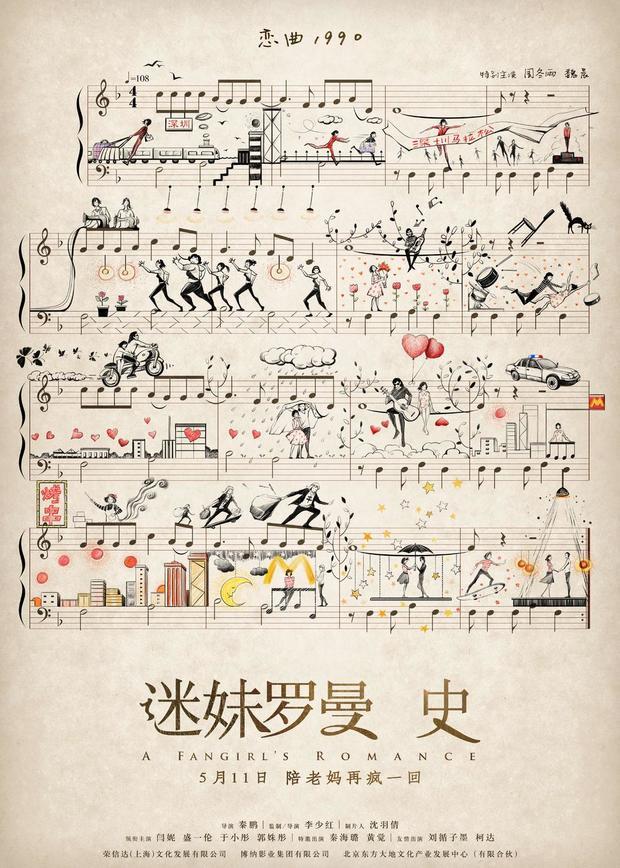 恋曲1990
特别主演 周冬雨 魏晨
=108
深圳
深圳马拉松
M
烤串
迷妹罗曼 史
A FANGIRL'S ROMANCE
5月11日 陪老妈再疯一回
导演 秦鹏 | 监制/导演 李少红 | 制片人 沈羽倩
领衔主演 闫妮 盛一伦 于小彤 郭姝彤 | 特邀出演 秦海璐 黄觉 | 友情出演 刘循子墨 柯达
荣信达(上海)文化发展有限公司 博纳影业集团有限公司 北京东方大地文化产业发展中心(有限合伙)